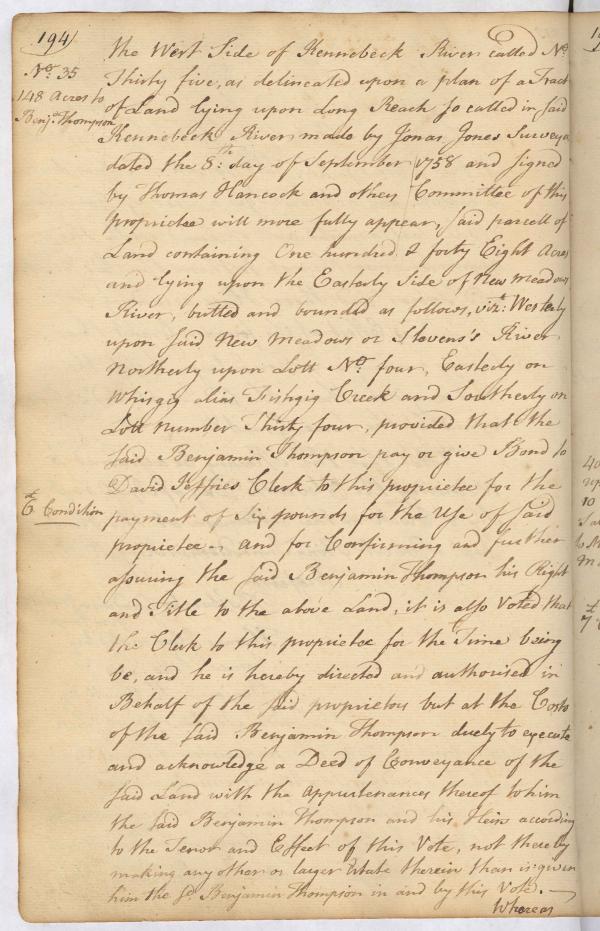 194
No. 35
148 Acres to
Benja. Thompson
the West Side of Kennebeck River called No.
Thirty five, as delineated upon a plan of a Tract
of Land lying upon Long Reach so called in said
Kennebeck River made by Jonas Jones Surveyor
dated the 8th: day of September 1758 and signed
by Thomas Hancock and others Committee of this
proprietee will more fully appear, said parcell of
Land containing One hundred & forty Eight Acres
and lying upon the Easterly Side of New meadows
River, butted and bounded as follows, vizt: Westerly
upon said New Meadows or Stevens's River
Northerly upon Lott No. four, Easterly on
Whisgig alias Fishgig Creek and Southerly on
Lott number Thirty four, provided that the
said Benjamin Thompson pay or give Bond to
David Jeffries Clerk to this proprietee for the
Condition
payment of Six pounds for the Use of said
proprietee - and for Confirming and further
assuring the said Benjamin Thompson his Right
and Title to the above Land, it is also Voted that
the Clerk to this proprietee for the Time being
be, and he is hereby directed and authorised in
Behalf of the said proprietors but at the Costs
of the said Benjamin Thompson duely to execute
and acknowledge a Deed of Conveyance of the
said Land with the appurtenances thereof to him
the said Benjamin Thompson and his Heirs according
to the Tenor and Effect of this Vote, not thereby
making any other or larger Estate therein than is given
him the sd. Benjamin Thompson in and by this Vote. —
Whereas